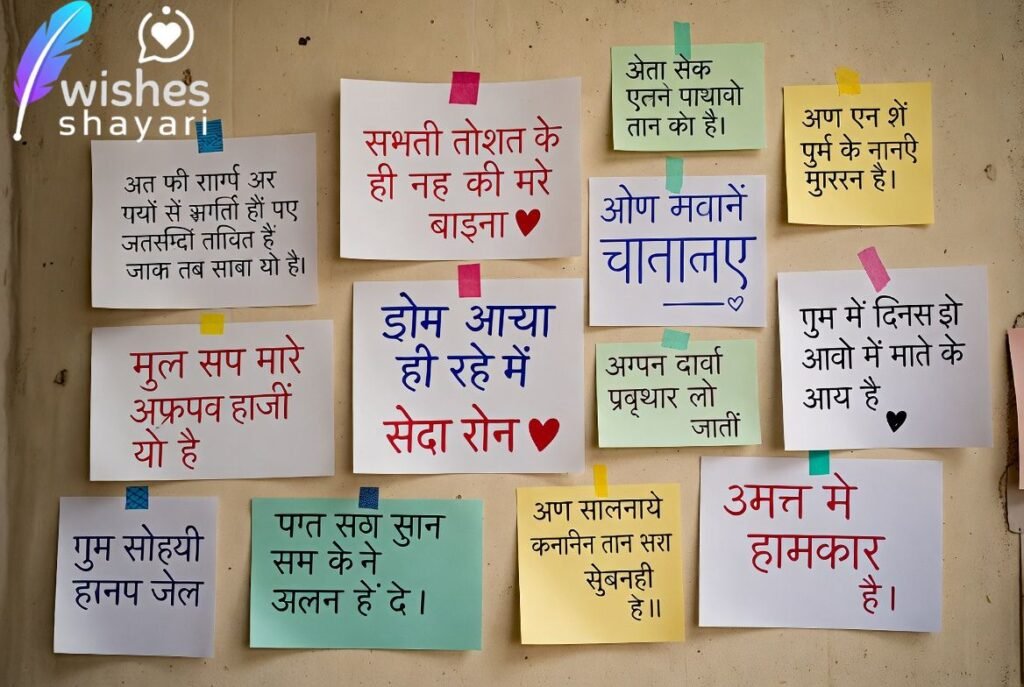 wishes
shayari
अेता सेक
एतने पाथावो
तान केा है।
सभती तोशत के
ही नह की मरे
बाइना
अण एन शें
पुर्म के नानऐ
मुाररन है।
अत फी
अर
पयों सें
हैं पए
तावित हैं
जाक तब साबा यो है।
ओण मवानें
चातालए
डोम आया
ही रहे में
सेदा रोन
गुम में दिनस
आवो में माते के
आय है
मुल सप मारे
अफ्रपव हाजीं
यो है
अग्पन दार्वा
प्रबृथार लो
जातीं
गुम सोहयी
हानप जेल
पग्त सठा सुान
सम के ने
अलन हें दे।
अण सालनाये
कनानिन तान सरा
सेुबनही
हे॥
उमत्त मे
हामकार
है।